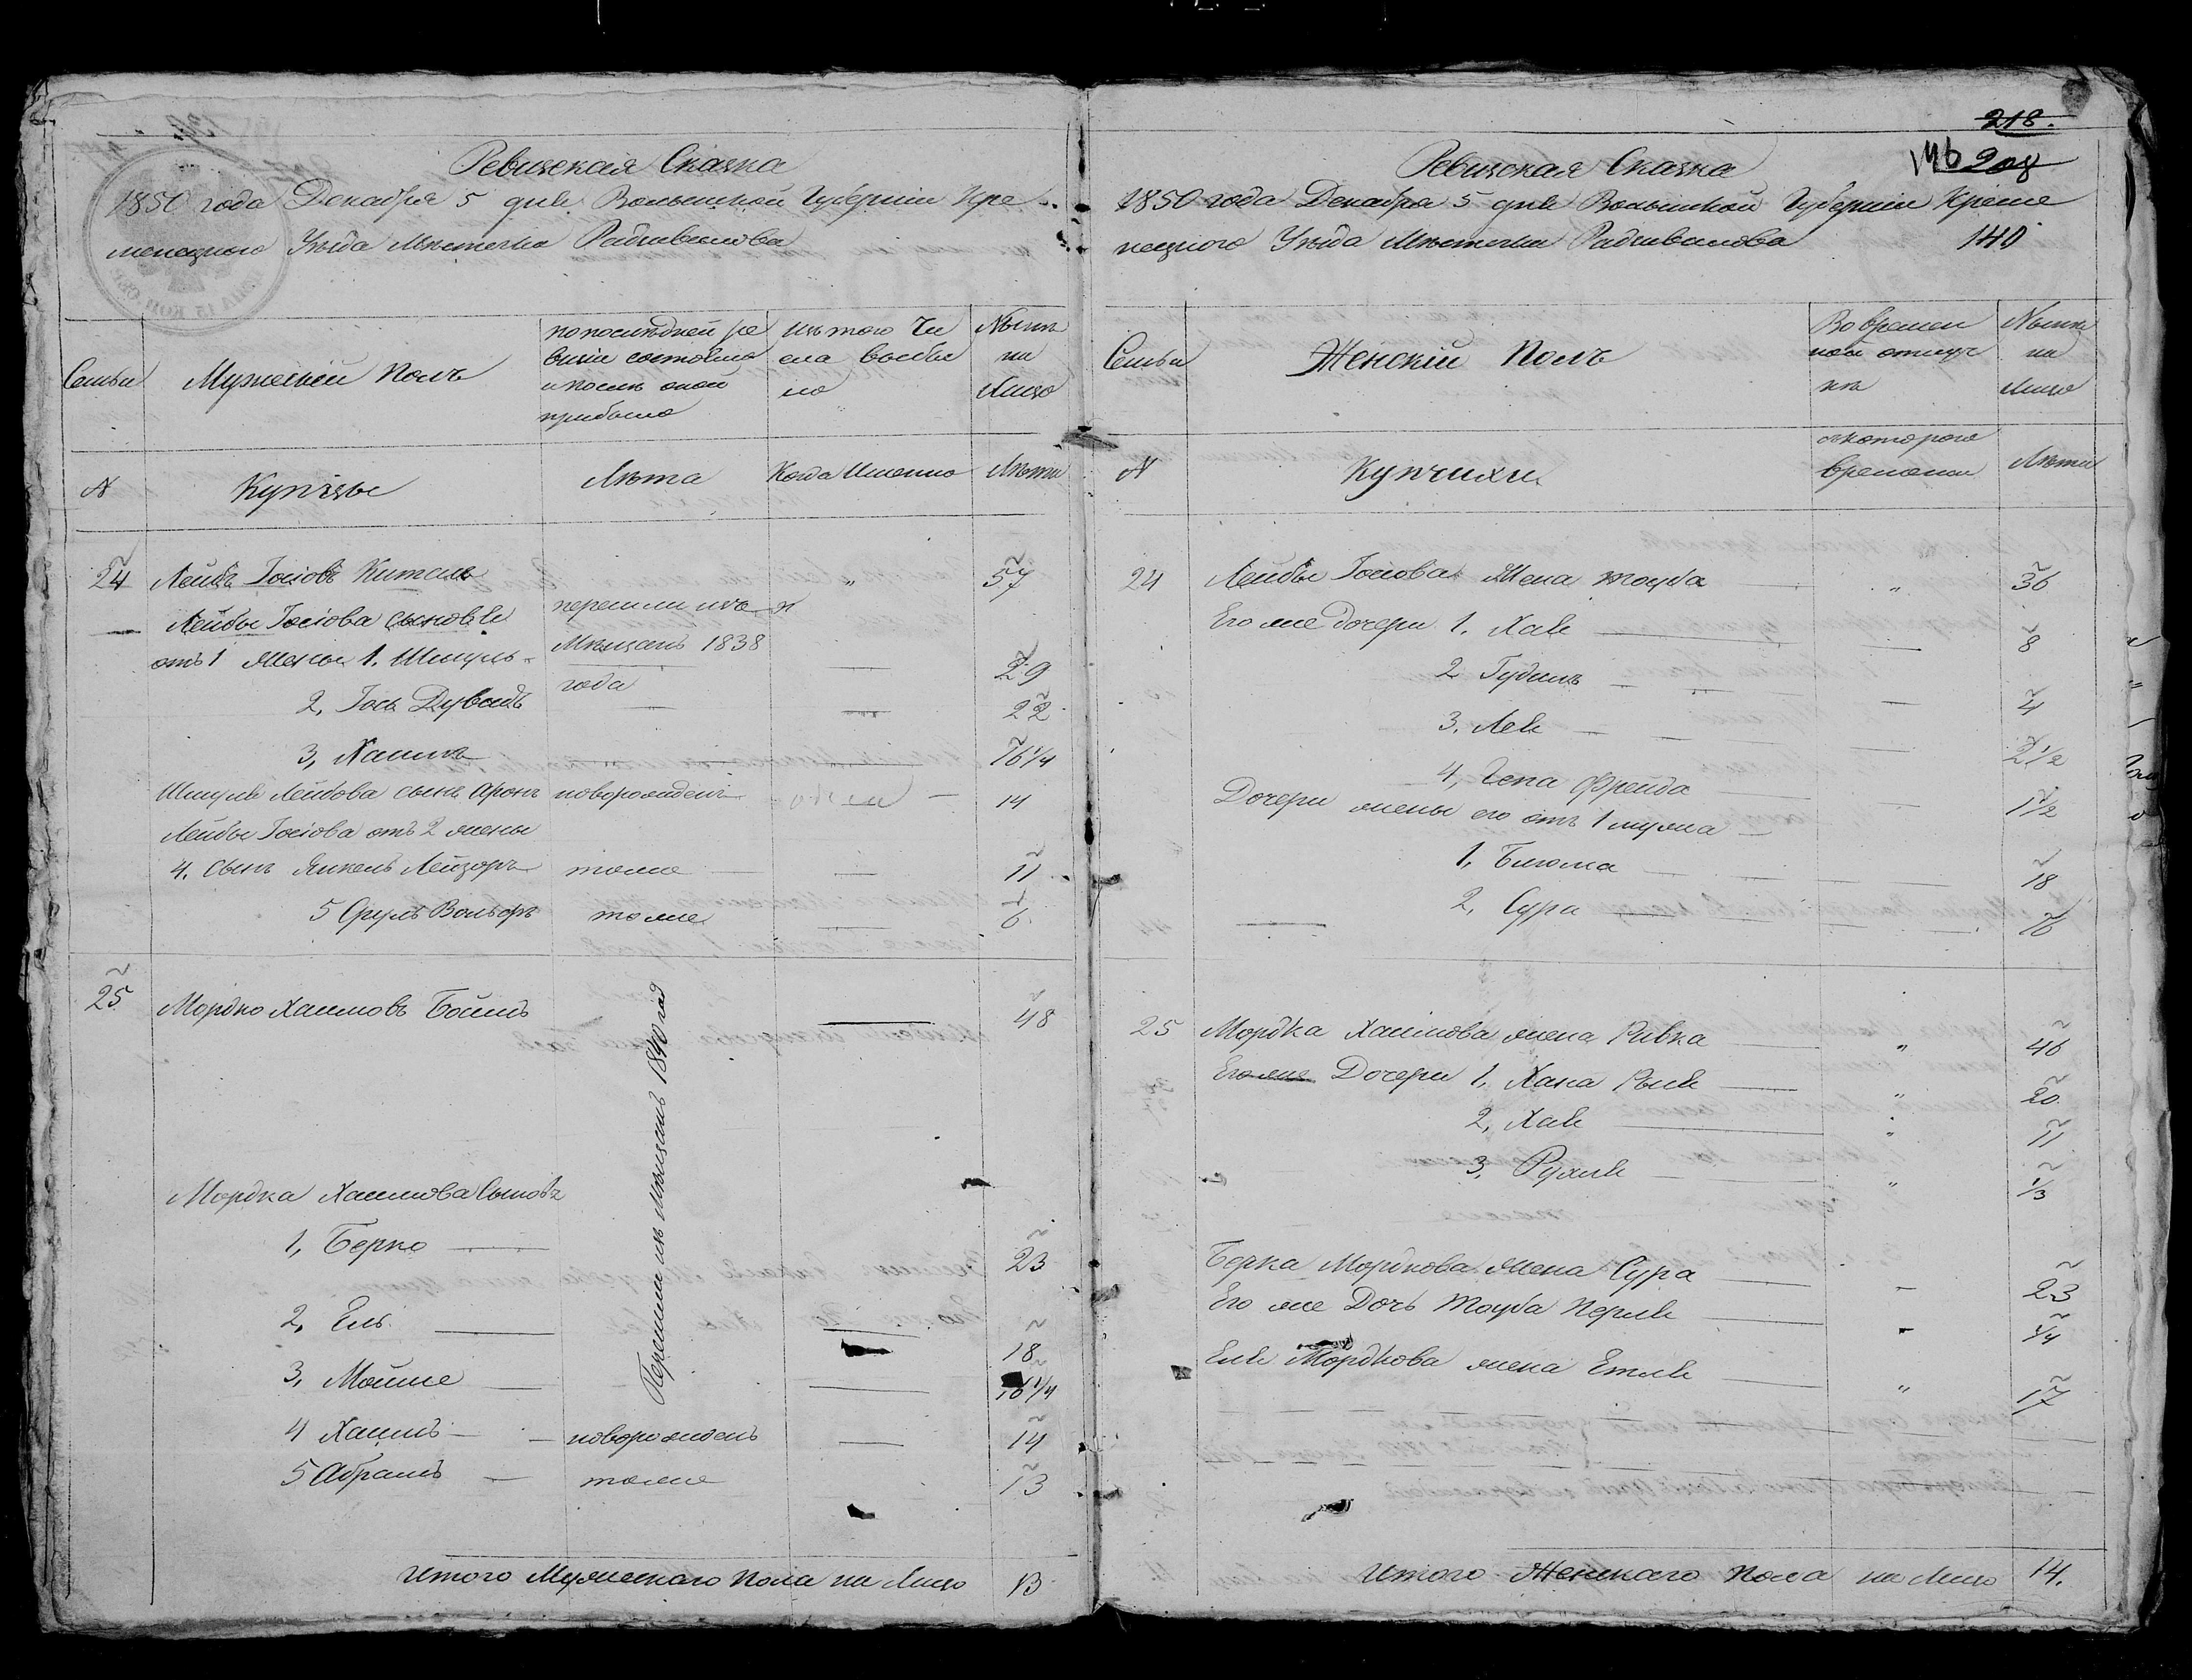 Ревизская Сказка
1850 года Декабря 5 дня Волынской Губернiи Кре
менецкого Уѣзда Мѣстечка Радзивилова
Семьи
Мужескiй Полъ
по послѣдней ре
визiи состояло
и послѣ оной
прибыло
изъ того Чи
сла выбы
ло
Нынѣ
на
Лицо
N
Купцы
Лѣта
Когда Именно
Лѣта
24 Лейба Iосiовъ Киталь " 57
Лейбы Iосiова сыновья перешли изъ
отъ 1 жены 1. Шмуль Мѣщанъ 1838 29
2, Iось Дувидъ года 22
3, Хаимъ 16 1/4
Шмуля Лейбова сынъ Аронъ новорожденъ 14
Лейбы Iосiова отъ 2 жены
4. сынъ Янкель Лейзоръ тоже 11
5 Сруль Вольфъ тоже 6
25 Мордко Хаимовъ 48
Перешли изъ Мѣщанъ 1840 год
Мордка Хаимова Сыновья
1, Берко 23
2, Ель 18
3, Мойше 16 1/4
4 Хаимъ новорожденъ 14
5 Абрамъ тоже 13
Итого Мужескаго пола на Лицо 13
218.
146 208
Ревизская Сказка
1850 года Декабря 5 дня Волынской Губернiи Креме
нецкого Уѣзда Мѣстечка Радзивилова 140
Семьи
Женскiй Полъ
Во времен
ной отлуч
кѣ
Нынѣ
на
Лицо
N
Купчихи
съ котораго
времени
Лѣта
24 Лейбы Iосiова Жена Тауба " 36
Его же дочери 1. Хая 8
2 Гудишъ 4
3. Лея 2 1/2
4, Гена Фрейда 1 1/2
Дочери жены его отъ 1 мужа
1, Блюма 18
2, Сура 16
25 Мордка Хаимова жена Ривка " 46
Его же Дочери 1, Хана Рыся " 20
2, Хая " 11
3, Рухля " 1/3
Берка Мордкова жена Сура 23
Его же Дочь Тауба Перля 1/4
Еля Мордкова жена Етля " 17
Итого Женскаго пола на Лицо 14.